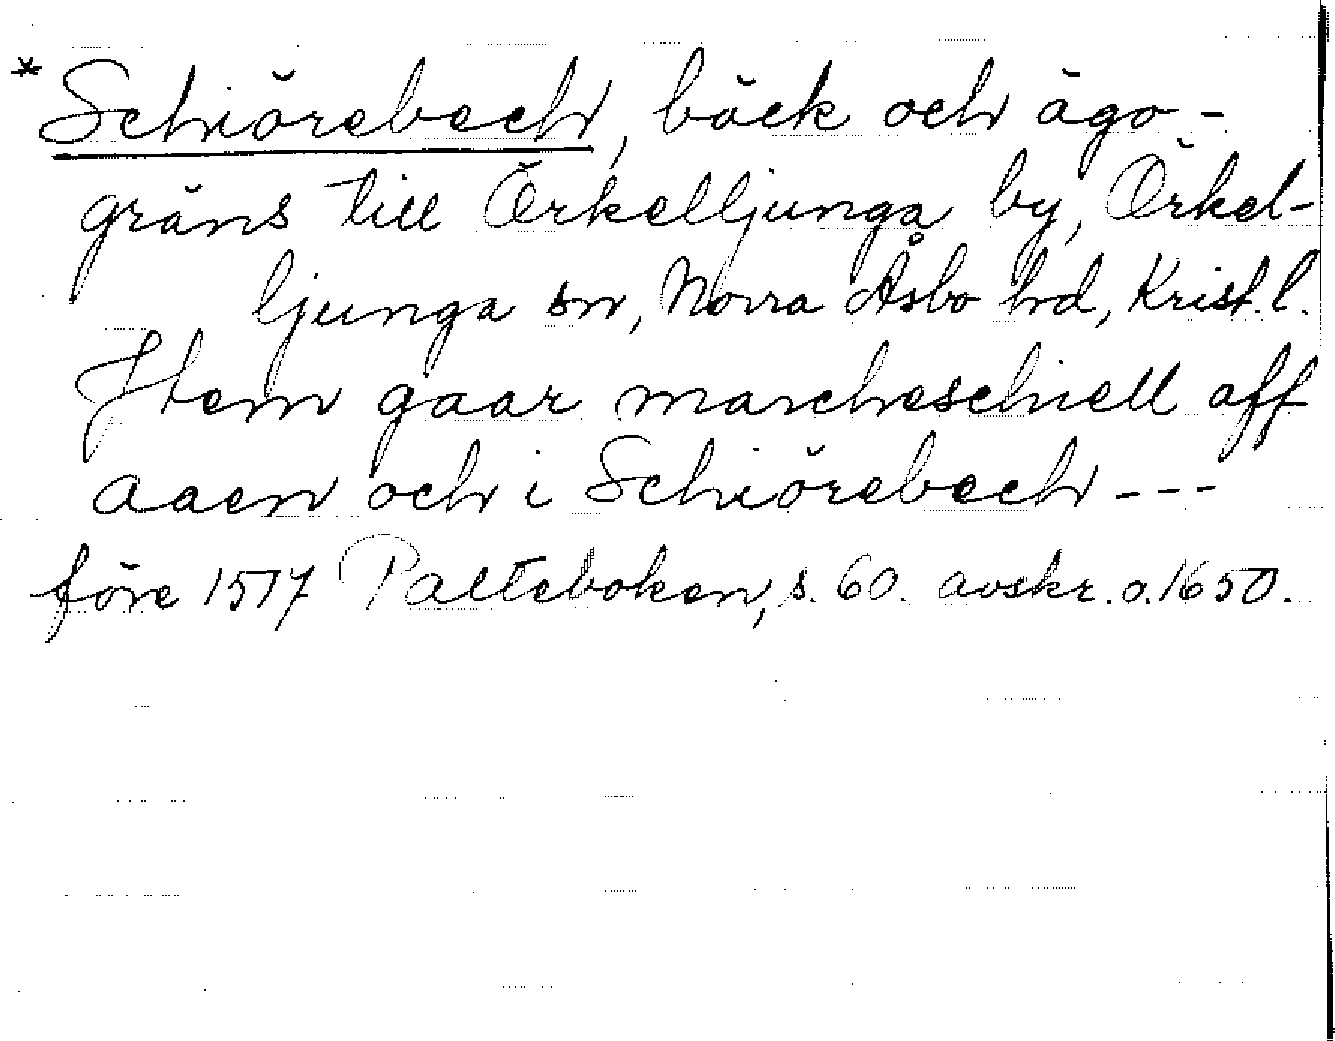 *Schiörebech, bäck och ägo-
gräns till Örkelljunga by, Örkel-
ljunga sn, Norra Åsbo hd, Krist. l.
Jtem gaar marcheschiell aff
aaen och i Schiörebech ---
före 1517 Palteboken, s. 60. avskr. o. 1650.